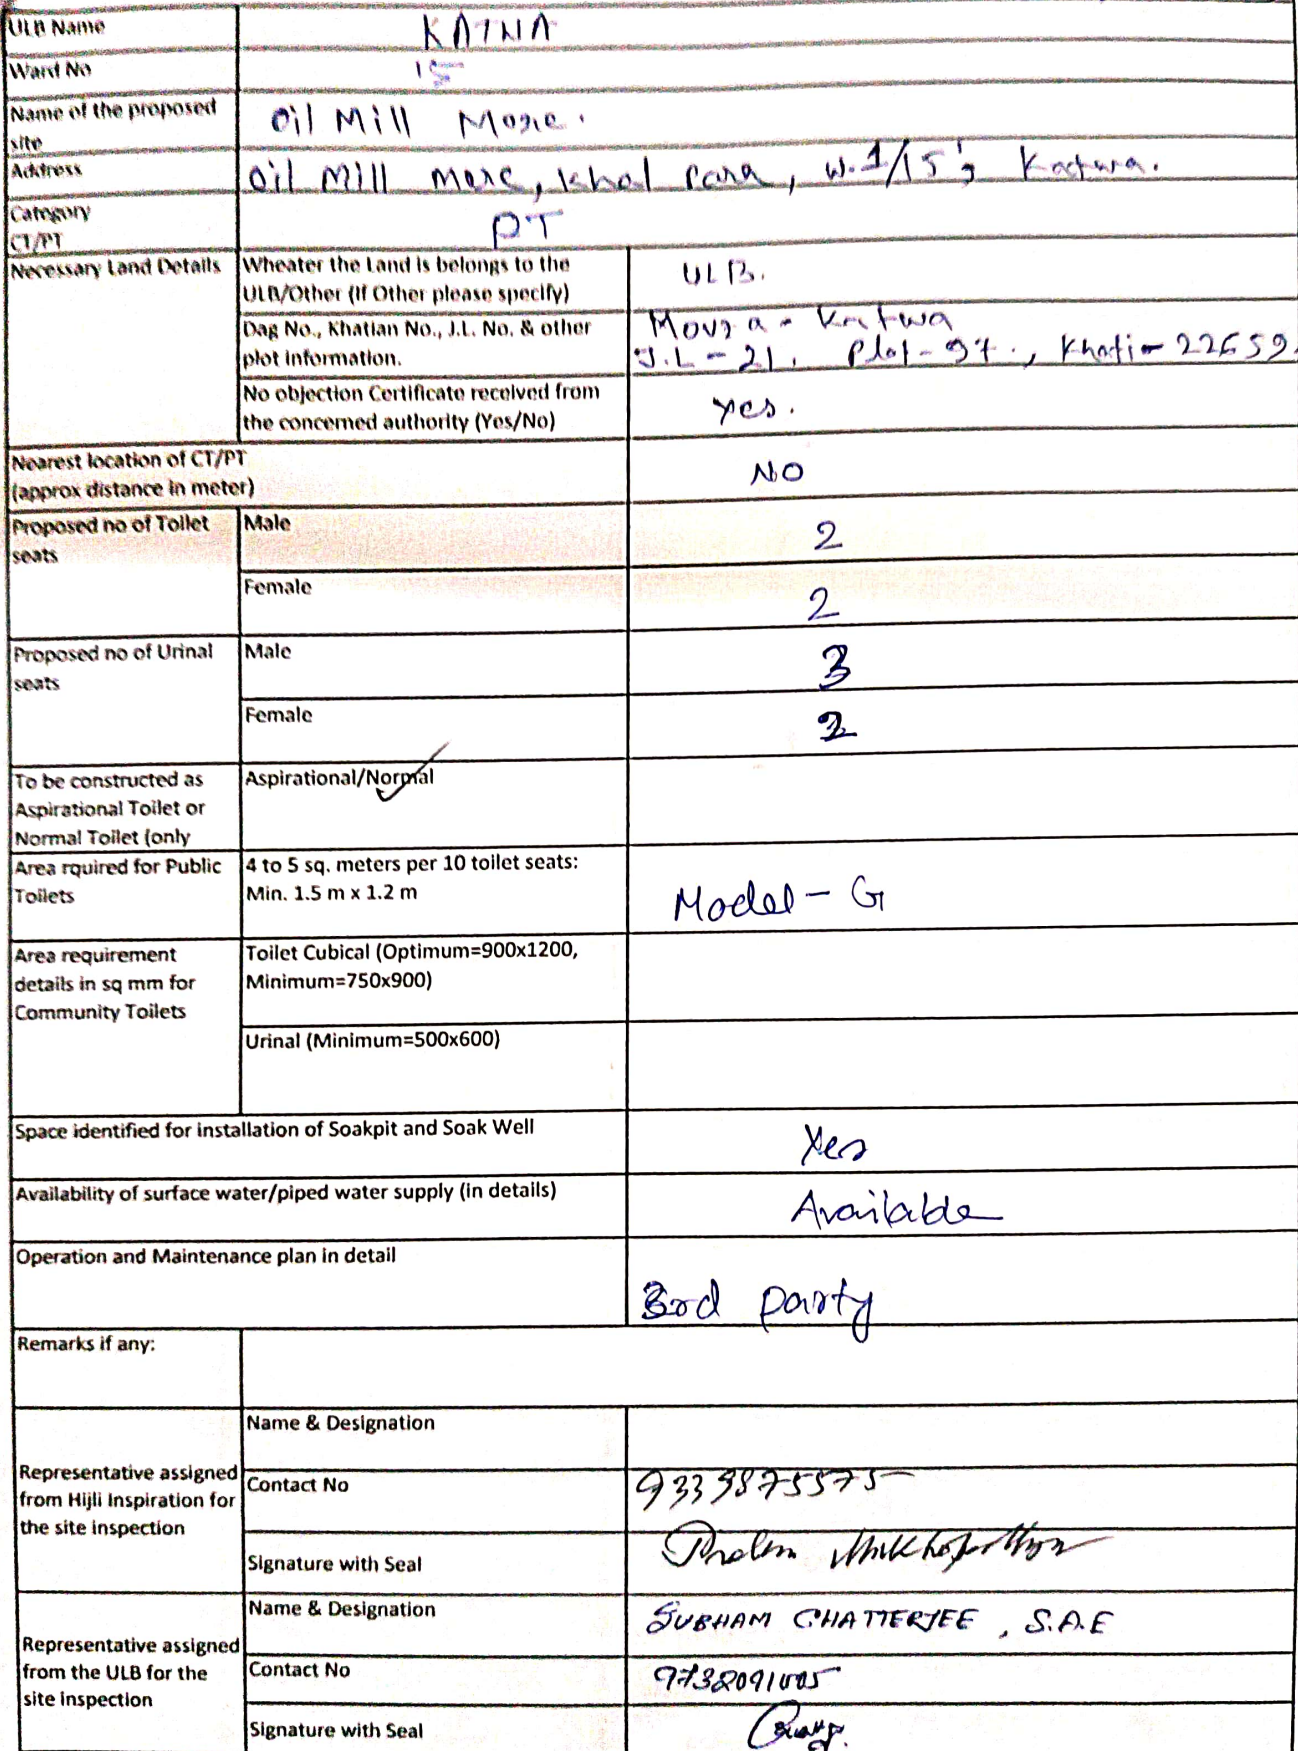 ULB Name KATWA
Ward No 15
Name of the proposed
site Oil Mill More.
Address Oil Mill more, khal Para, W. 1/15, Katwa.
Category
CT/PT PT
Necessary Land Details Wheater the Land is belongs to the
ULB/Other (If Other please specify) ULB.
Dag No., Khatian No., J.L. No. & other
plot information. Mouza - Katwa
J.L - 21, Plot - 97., Khati - 22659.
No objection Certificate received from
the concerned authority (Yes/No) Yes.
Nearest location of CT/PT
(approx distance in meter) NO
Proposed no of Toilet
seats Male 2
Female 2
Proposed no of Urinal
seats Male 3
Female 2
To be constructed as
Aspirational Toilet or
Normal Toilet (only Aspirational/Normal
Area rquired for Public
Toilets 4 to 5 sq. meters per 10 toilet seats:
Min. 1.5 m x 1.2 m Model - G
Area requirement
details in sq mm for
Community Toilets Toilet Cubical (Optimum=900x1200,
Minimum=750x900)
Urinal (Minimum=500x600)
Space identified for installation of Soakpit and Soak Well Yes
Availability of surface water/piped water supply (in details) Available
Operation and Maintenance plan in detail 3rd party
Remarks if any:
Representative assigned
from Hijli Inspiration for
the site inspection Name & Designation
Contact No 9333875575
Signature with Seal Mukhopadhyay
Representative assigned
from the ULB for the
site inspection Name & Designation SUBHAM CHATTERJEE, S.A.E
Contact No
Signature with Seal